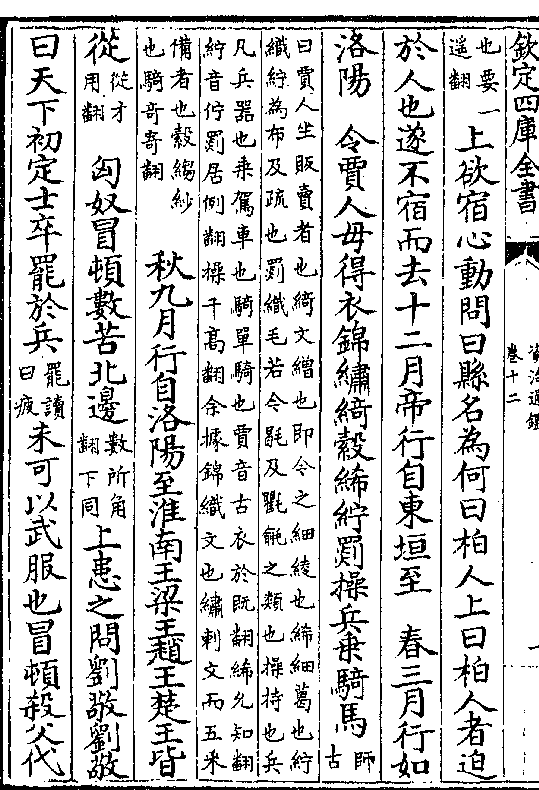 欽定四庫全書
資治通鑑
卷十二
也要一遥翻上欲宿心動問曰縣名為何曰柏人上曰柏人者迫
於人也遂不宿而去十二月帝行自東垣至　春三月行如
洛陽　令賈人毋得衣錦繡綺縠絺紵罽操兵乗騎馬師古
曰賈人坐販賣者也綺文繒也即今之細綾也絺細葛也紵
織紵為布及疏也罽織毛若今毼及氍毹之類也操持也兵
凡兵器也乗駕車也騎單騎也賈音古衣於既翻絺允知翻
紵音佇罽居例翻操千高翻余據錦織文也繡刺文而五采
備者也縠縐紗
也騎奇寄翻
秋九月行自洛陽至淮南王梁王趙王楚王皆
從從才用翻　匈奴冒頓數苦北邊數所角翻下同上患之問劉敬劉敬
曰天下初定士卒罷於兵罷讀曰疲未可以武服也冒頓殺父代